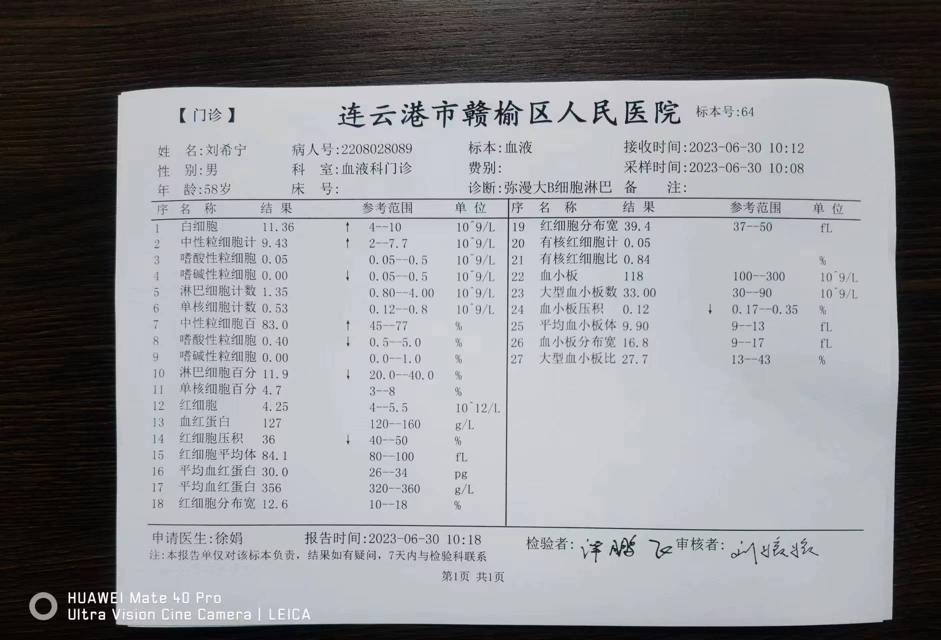 【门诊】 连云港市赣榆区人民医院 标本号:64
姓 名:刘希宁 病人号:2208028089 标本:血液 接收时间:2023-06-30 10:12
性 别:男 科 室:血液科门诊 费别: 采样时间:2023-06-30 10:08
年 龄:58岁 床 号: 诊断:弥漫大B细胞淋巴 备 注:
序 名 称 结 果 参考范围 单 位 序 名 称 结 果 参考范围 单 位
1 白细胞 11.36 ↑ 4--10 10^9/L 19 红细胞分布宽 39.4 37--50 fL
2 中性粒细胞计 9.43 ↑ 2--7.7 10^9/L 20 有核红细胞计 0.05
3 嗜酸性粒细胞 0.05 0.05--0.5 10^9/L 21 有核红细胞比 0.84 %
4 嗜碱性粒细胞 0.00 ↓ 0.05--0.5 10^9/L 22 血小板 118 100--300 10^9/L
5 淋巴细胞计数 1.35 0.80--4.00 10^9/L 23 大型血小板数 33.00 30--90 10^9/L
6 单核细胞计数 0.53 0.12--0.8 10^9/L 24 血小板压积 0.12 ↓ 0.17--0.35 %
7 中性粒细胞百 83.0 ↑ 45--77 % 25 平均血小板体 9.90 9--13 fL
8 嗜酸性粒细胞 0.40 ↓ 0.5--5.0 % 26 血小板分布宽 16.8 9--17 fL
9 嗜碱性粒细胞 0.00 0.0--1.0 % 27 大型血小板比 27.7 13--43 %
10 淋巴细胞百分 11.9 ↓ 20.0--40.0 %
11 单核细胞百分 4.7 3--8 %
12 红细胞 4.25 4--5.5 10^12/L
13 血红蛋白 127 120--160 g/L
14 红细胞压积 36 ↓ 40--50 %
15 红细胞平均体 84.1 80--100 fL
16 平均血红蛋白 30.0 26--34 pg
17 平均血红蛋白 356 320--360 g/L
18 红细胞分布宽 12.6 10--18 %
申请医生:徐娟 报告时间:2023-06-30 10:18 检验者: 审核者:
注:本报告单仅对该标本负责，结果如有疑问，7天内与检验科联系
第1页 共1页
HUAWEI Mate 40 Pro
Ultra Vision Cine Camera | LEICA